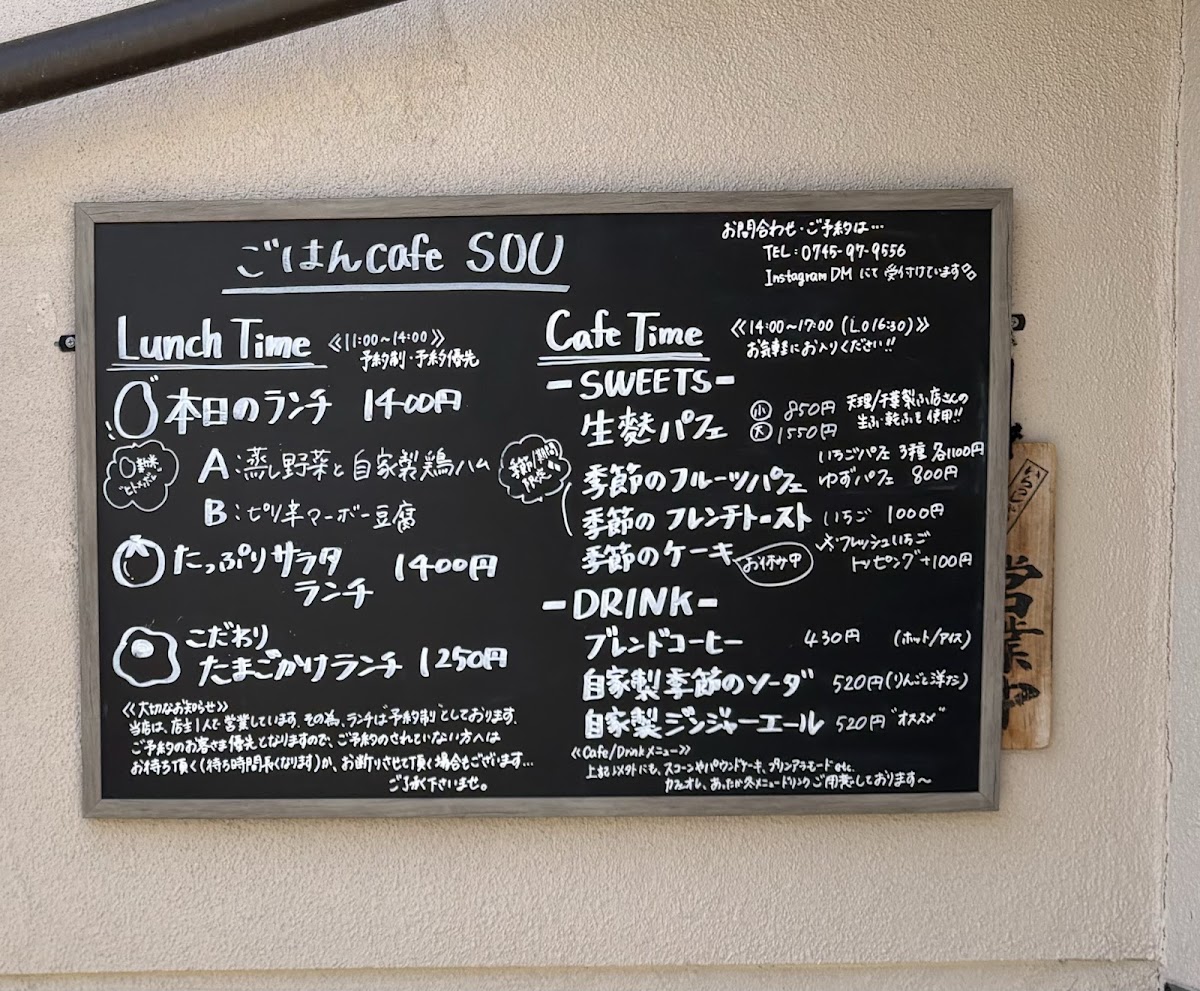 ごはんcafe SOU
お問合わせ・ご予約は…
TEL:0745-97-9556
Instagram DM にて 受付けています
Lunch Time
≪11:00~14:00≫
予約制・予約優先
本日のランチ 1400円
A:蒸し野菜と自家製鶏ハム
B:ピリ辛マーボー豆腐
たっぷりサラダ
ランチ
1400円
こだわり
たまごかけランチ 1250円
≪大切なお知らせ≫
当店は、店主1人で営業しています。その為、ランチは"予約制"としております。
ご予約のお客さま優先となりますので、ご予約のされていない方へは
お待ち頂く(待ち時間長くなります)か、お断りさせて頂く場合もございます…
ご了承下さいませ。
Cafe Time
≪14:00~17:00 (L.O16:30)≫
お気軽にお入りください!!
-SWEETS-
生麩パフェ
小 850円
大 1550円
天理/千葉製ふ店さんの
生ふ・乾ふを使用!!
季節/期間
限定
季節のフルーツパフェ
いちごパフェ 3種 各1100円
ゆずパフェ 800円
季節のフレンチトースト いちご 1000円
季節のケーキ お休み中
フレッシュいちご
トッピング+100円
-DRINK-
ブレンドコーヒー 430円 (ホット/アイス)
自家製季節のソーダ 520円(りんごと洋なし)
自家製ジンジャーエール 520円 "オススメ"
≪Cafe/Drinkメニュー≫
上記以外にも、スコーンやパウンドケーキ、プリンアラモードetc.
カフェオレ、あったか冬メニュードリンクご用意しております~
営業中